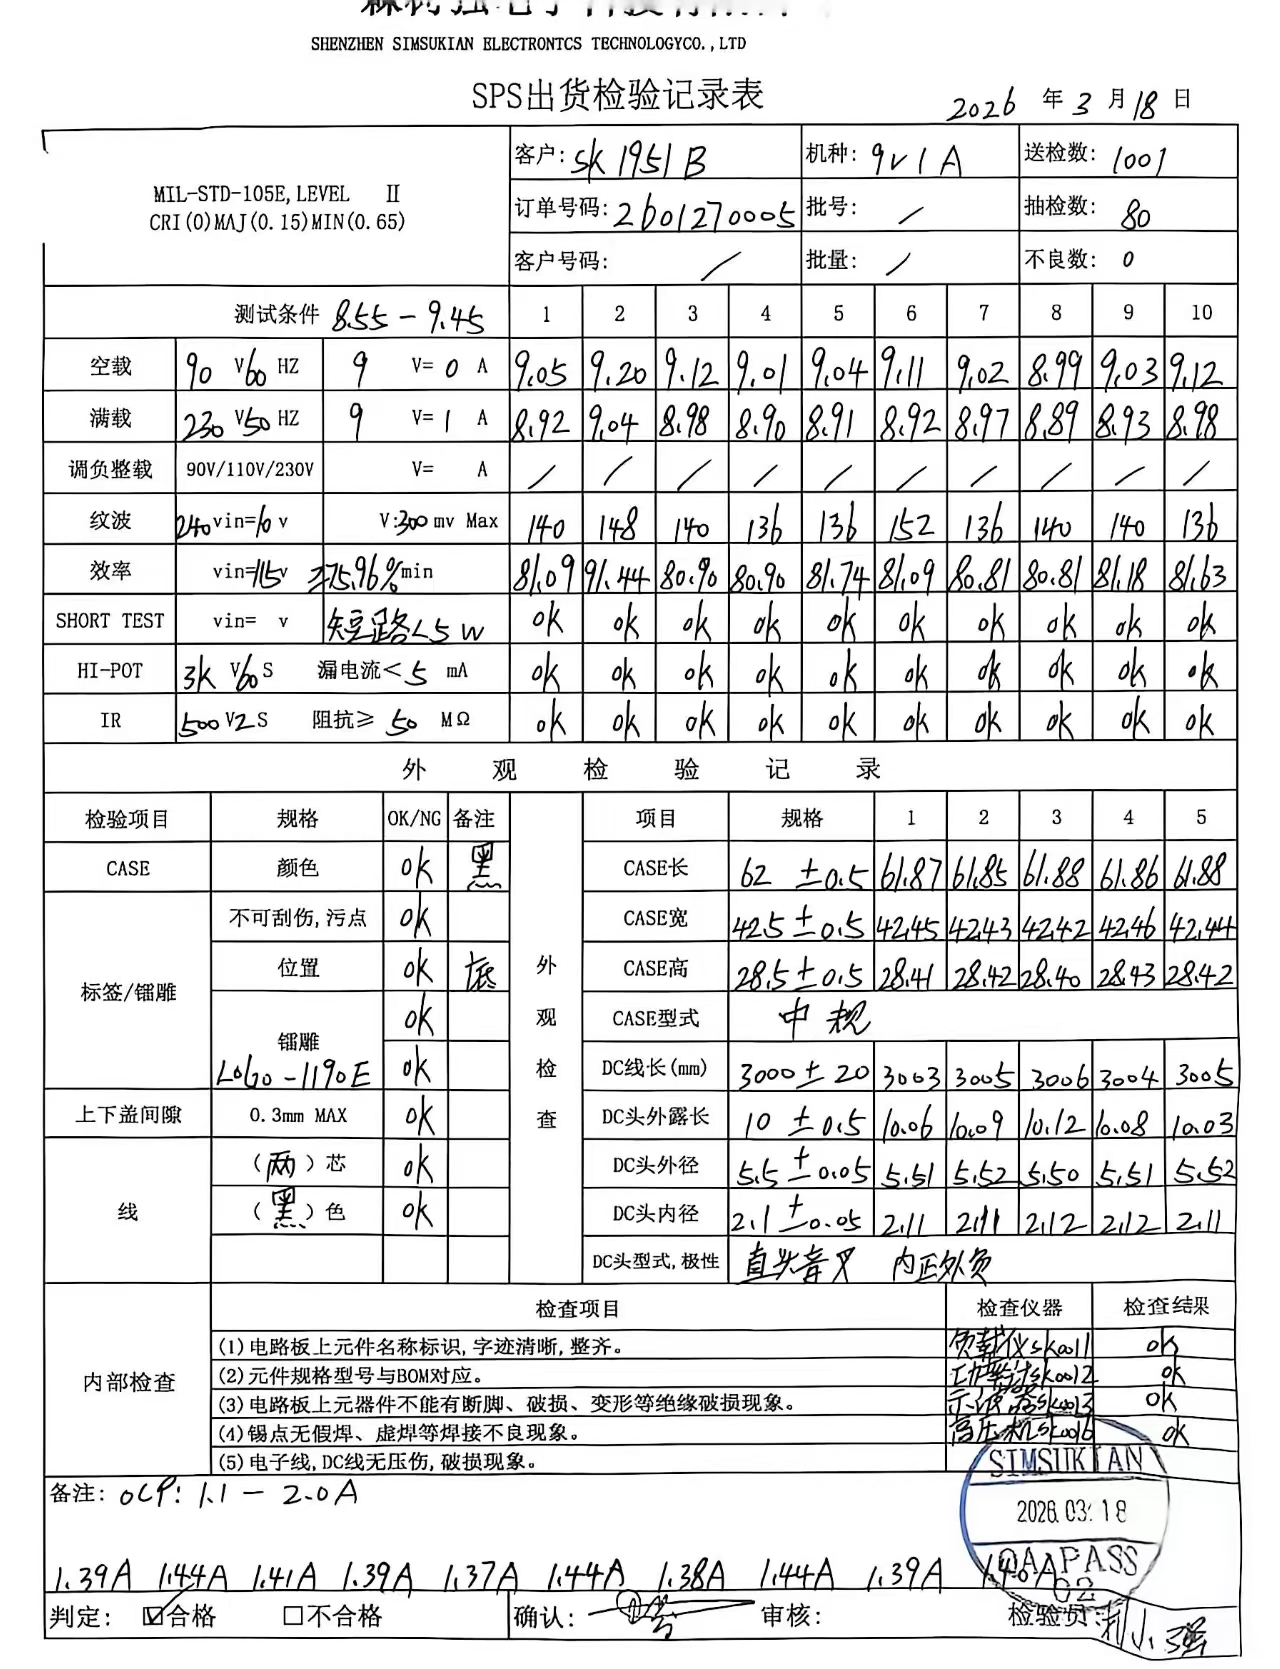 SHENZHEN SIMSUKIAN ELECTRONTCS TECHNOLOGYCO.,LTD
SPS出货检验记录表
2026 年 3 月 18 日
MIL-STD-105E,LEVEL Ⅱ
CRI(0)MAJ(0.15)MIN(0.65)
客户: SK1951B 机种: 9V1A 送检数: 1001
订单号码: 2601270005 批号: / 抽检数: 80
客户号码: / 批量: / 不良数: 0
测试条件 8.55-9.45 1 2 3 4 5 6 7 8 9 10
空载 90 V60 HZ 9 V= 0 A 9.05 9.20 9.12 9.01 9.04 9.11 9.02 8.99 9.03 9.12
满载 230 V50 HZ 9 V= 1 A 8.92 9.04 8.98 8.90 8.91 8.92 8.97 8.89 8.93 8.98
调负整载 90V/110V/230V V= A / / / / / / / / / /
纹波 240vin=60 v V:300mv Max 140 148 140 136 136 152 136 140 140 136
效率 vin=115v ≥75.96%min 81.09 91.44 80.90 80.90 81.74 81.09 80.81 80.81 81.18 81.63
SHORT TEST vin= v 短路<5W ok ok ok ok ok ok ok ok ok ok
HI-POT 3K V60S 漏电流<5 mA ok ok ok ok ok ok ok ok ok ok
IR 500V2S 阻抗≥ 50 MΩ ok ok ok ok ok ok ok ok ok ok
外观检验记录
检验项目 规格 OK/NG 备注 外观检查 项目 规格 1 2 3 4 5
CASE 颜色 ok 黑 CASE长 62 ±0.5 61.87 61.85 61.88 61.86 61.88
标签/镭雕 不可刮伤,污点 ok CASE宽 42.5±0.5 42.45 42.43 42.42 42.46 42.44
位置 ok 底 CASE高 28.5±0.5 28.41 28.42 28.40 28.43 28.42
镭雕 ok CASE型式 中规
LOGO-1190E ok DC线长(mm) 3000±20 3003 3005 3006 3004 3005
上下盖间隙 0.3mm MAX ok DC头外露长 10 ±0.5 10.06 10.09 10.12 10.08 10.03
线 (两)芯 ok DC头外径 5.5±0.05 5.51 5.52 5.50 5.51 5.52
(黑)色 ok DC头内径 2.1±0.05 2.11 2.11 2.12 2.12 2.11
DC头型式,极性 直头音叉 内正外负
内部检查 检查项目 检查仪器 检查结果
(1)电路板上元件名称标识,字迹清晰,整齐。 负载仪SK0011 ok
(2)元件规格型号与BOM对应。 功率计SK0012 ok
(3)电路板上元器件不能有断脚、破损、变形等绝缘破损现象。 示波器SK0013 ok
(4)锡点无假焊、虚焊等焊接不良现象。 高压机SK0016 ok
(5)电子线,DC线无压伤,破损现象。
备注: OCP: 1.1-2.0A
SIMSUKIAN
2026.03.18
QA PASS
02
1.39A 1.44A 1.41A 1.39A 1.37A 1.44A 1.38A 1.44A 1.39A
判定: ☑合格 □不合格 确认: 审核: 检验员: